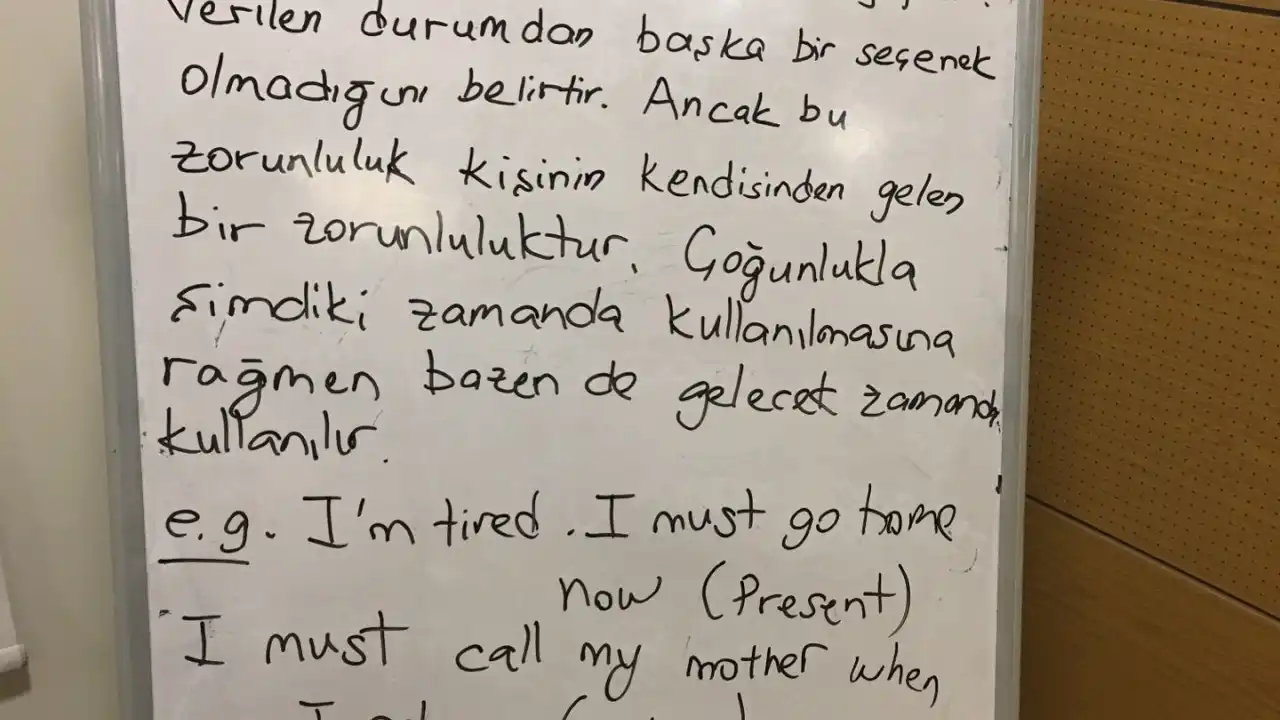 verilen durumdan başka bir seçenek
olmadığını belirtir. Ancak bu
zorunluluk kişinin kendisinden gelen
bir zorunluluktur. Çoğunlukla
şimdiki zamanda kullanılmasına
rağmen bazen de gelecek zamanda
kullanılır.
e.g. I'm tired. I must go home
now (Present)
I must call my mother when
I